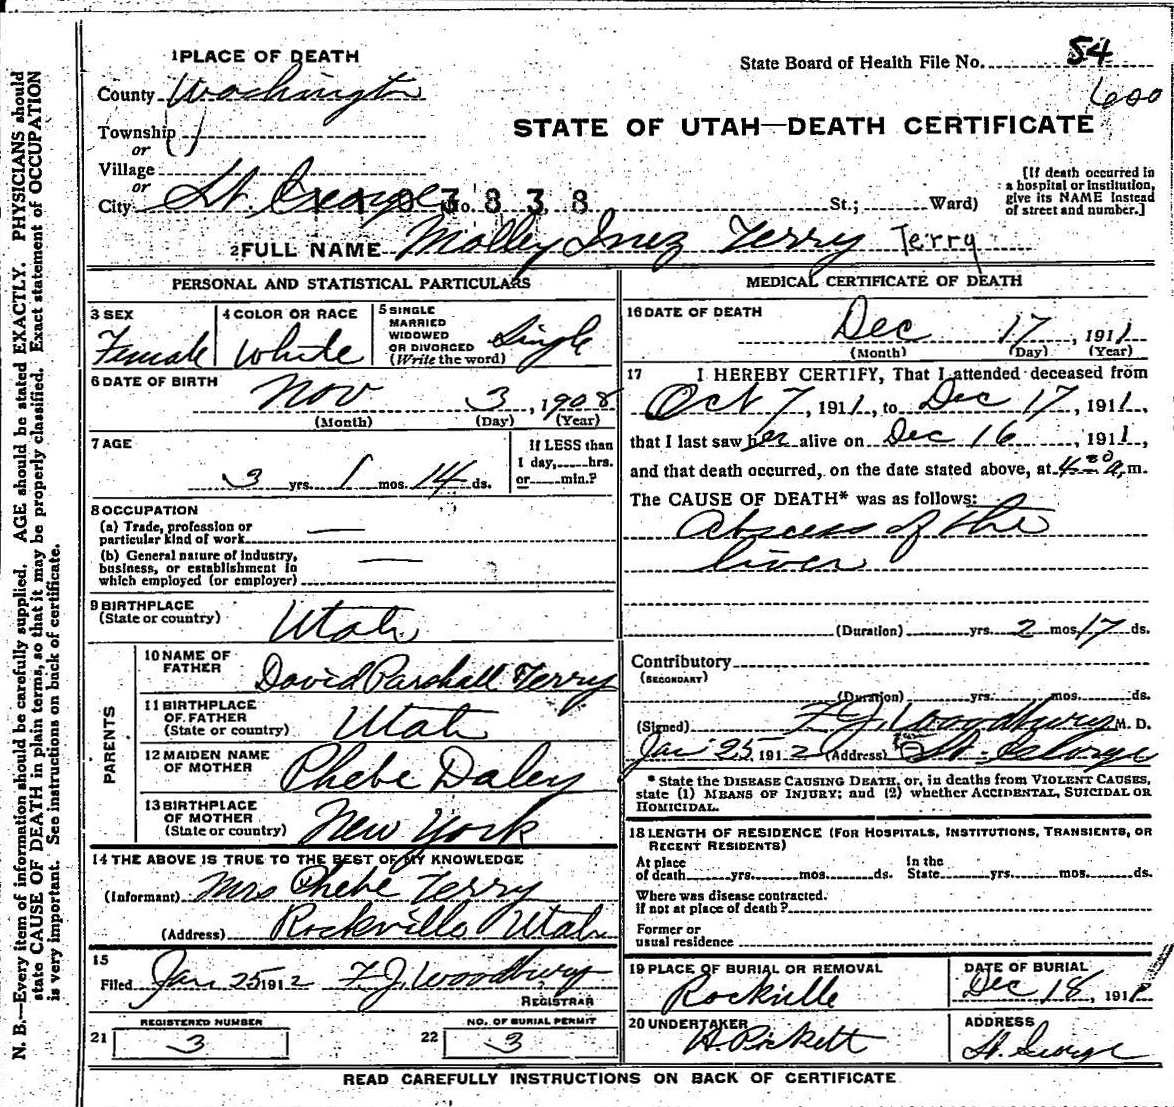 1 PLACE OF DEATH
State Board of Health File No. 54
600
County Washington
STATE OF UTAH—DEATH CERTIFICATE
Township
or
Village
or
City St. George No. 3838 St.; Ward)
[If death occurred in
a hospital or institution,
give its NAME instead
of street and number.]
2 FULL NAME Molley Inez Terry Terry
PERSONAL AND STATISTICAL PARTICULARS
3 SEX
Female
4 COLOR OR RACE
White
5 SINGLE
MARRIED
WIDOWED
OR DIVORCED
(Write the word)
Single
6 DATE OF BIRTH
Nov 3, 1908
(Month) (Day) (Year)
7 AGE
3 yrs. 1 mos. 14 ds.
If LESS than
1 day, hrs.
or min.?
8 OCCUPATION
(a) Trade, profession or
particular kind of work —
(b) General nature of industry,
business, or establishment in
which employed (or employer) —
9 BIRTHPLACE
(State or country)
Utah
PARENTS
10 NAME OF
FATHER
David Parshall Terry
11 BIRTHPLACE
OF FATHER
(State or country)
Utah
12 MAIDEN NAME
OF MOTHER
Phebe Daley
13 BIRTHPLACE
OF MOTHER
(State or country)
New York
14 THE ABOVE IS TRUE TO THE BEST OF MY KNOWLEDGE
(Informant) Mrs Phebe Terry
(Address) Rockville Utah
15
Filed Jan 25 1912 F. J. Woodbury
REGISTRAR
REGISTERED NUMBER
21 3
NO. OF BURIAL PERMIT
22 3
MEDICAL CERTIFICATE OF DEATH
16 DATE OF DEATH
Dec 17, 1911
(Month) (Day) (Year)
17 I HEREBY CERTIFY, That I attended deceased from
Oct 7, 1911, to Dec 17, 1911,
that I last saw her alive on Dec 16, 1911,
and that death occurred, on the date stated above, at 4:30 a.m.
The CAUSE OF DEATH* was as follows:
Abscess of the
liver
(Duration) yrs. 2 mos. 17 ds.
Contributory
(SECONDARY)
(Duration) yrs. mos. ds.
(Signed) F. J. Woodbury M. D.
Jan 25 1912 (Address) St. George
* State the DISEASE CAUSING DEATH, or, in deaths from VIOLENT CAUSES,
state (1) MEANS OF INJURY; and (2) whether ACCIDENTAL, SUICIDAL OR
HOMICIDAL.
18 LENGTH OF RESIDENCE (FOR HOSPITALS, INSTITUTIONS, TRANSIENTS, OR
RECENT RESIDENTS)
At place
of death yrs. mos. ds.
In the
State yrs. mos. ds.
Where was disease contracted.
if not at place of death?
Former or
usual residence
19 PLACE OF BURIAL OR REMOVAL
Rockville
DATE OF BURIAL
Dec 18, 1911
20 UNDERTAKER
A. Pickett
ADDRESS
St. George
READ CAREFULLY INSTRUCTIONS ON BACK OF CERTIFICATE
N. B.—Every item of information should be carefully supplied. AGE should be stated EXACTLY. PHYSICIANS should
state CAUSE OF DEATH in plain terms, so that it may be properly classified. Exact statement of OCCUPATION
is very important. See instructions on back of certificate.